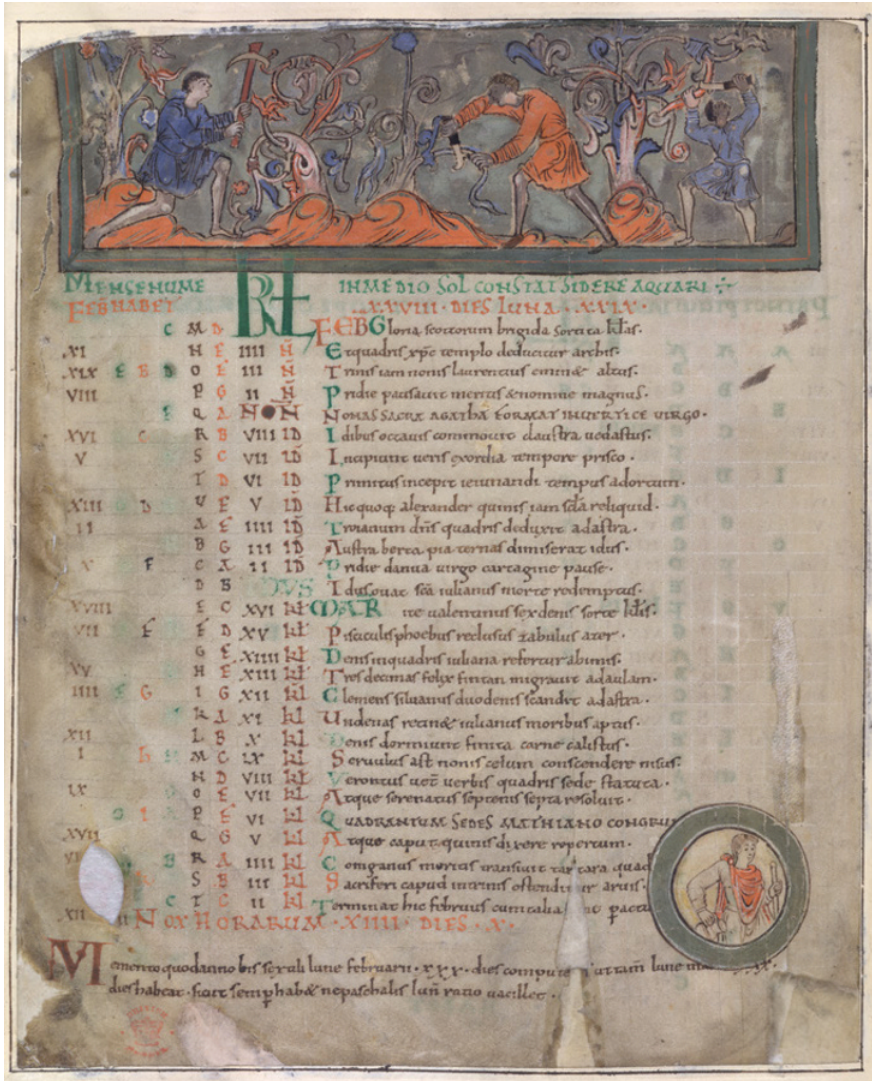 MENSE NUME INMEDIO SOL CONSTAT SIDERE AQUARI
FEB HABET XXVIII · DIES LUNA · XXIX ·
C M D KL FEB Gloria scottorum brigida sortita klas·
XI N E IIII N Et quadris xpc templo deducitur archis·
XIX E B D O F III N Trinis iam nonis laurentius altus·
VIII P G II N Pridie pausavit meritus & nomine magnus·
Q A NON NONAS SACRA AGATHA FORMAT IN VERTICE VIRGO·
XVI C R B VIII ID Idibus octavis commovit claustra vedastus·
V S C VII ID Incipiunt veris exordia tempore prisco·
T D VI ID Primitus incepit ieiunandi tempus adortum·
XIII D V E V ID Hic quoq alexander quinis iam reliquid·
II A F IIII ID Troianum dns quadris deduxit ad astra·
B G III ID Austra borea pia ternas dimiserat idus·
X F C A II ID Pridie danua virgo cartagine pause·
D B IDUS Idus ouat sca iulianus morte redemptus·
XVIII E C XVI kl MAR valentinus sex denis sorte klis·
VII F F D XV kl Pisciculis phoebus reclusus zabulus ater·
G E XIIII kl Denis in quadris iuliana refertur abimis·
XV H F XIII kl Tres decimas felix fintan migravit ad aulam·
IIII G I G XII kl Clemens silvanus duodenis scandit ad astra·
K A XI kl Undenas retin& iulianus moribus aptus·
XII L B X kl Denis dormiunt finita carne calistus·
I h M C IX kl Servulus ast nonis celum conscendere nisus·
N D VIII kl Verontus verbis quadris sede statuta·
IX O E VII kl Atque serenatus septenis septa resoluit·
P F VI kl QUADRANTUM SEDES MATHIANO
XVII Q G V kl Atque caput quinis dixere repertum·
R A IIII kl Comganus meritis transivit tartara quad
S B III kl Sacriferi capud in trinis ostenditur aruis·
C T C II kl Terminat hic februus
XII NOX HORARUM · XIIII · DIES · X ·
Memento quod anno bissextili lune februarii · xxx · dies compute lune
dies habeat · sicut semp hab& ne paschalis lun ratio vacillet ·